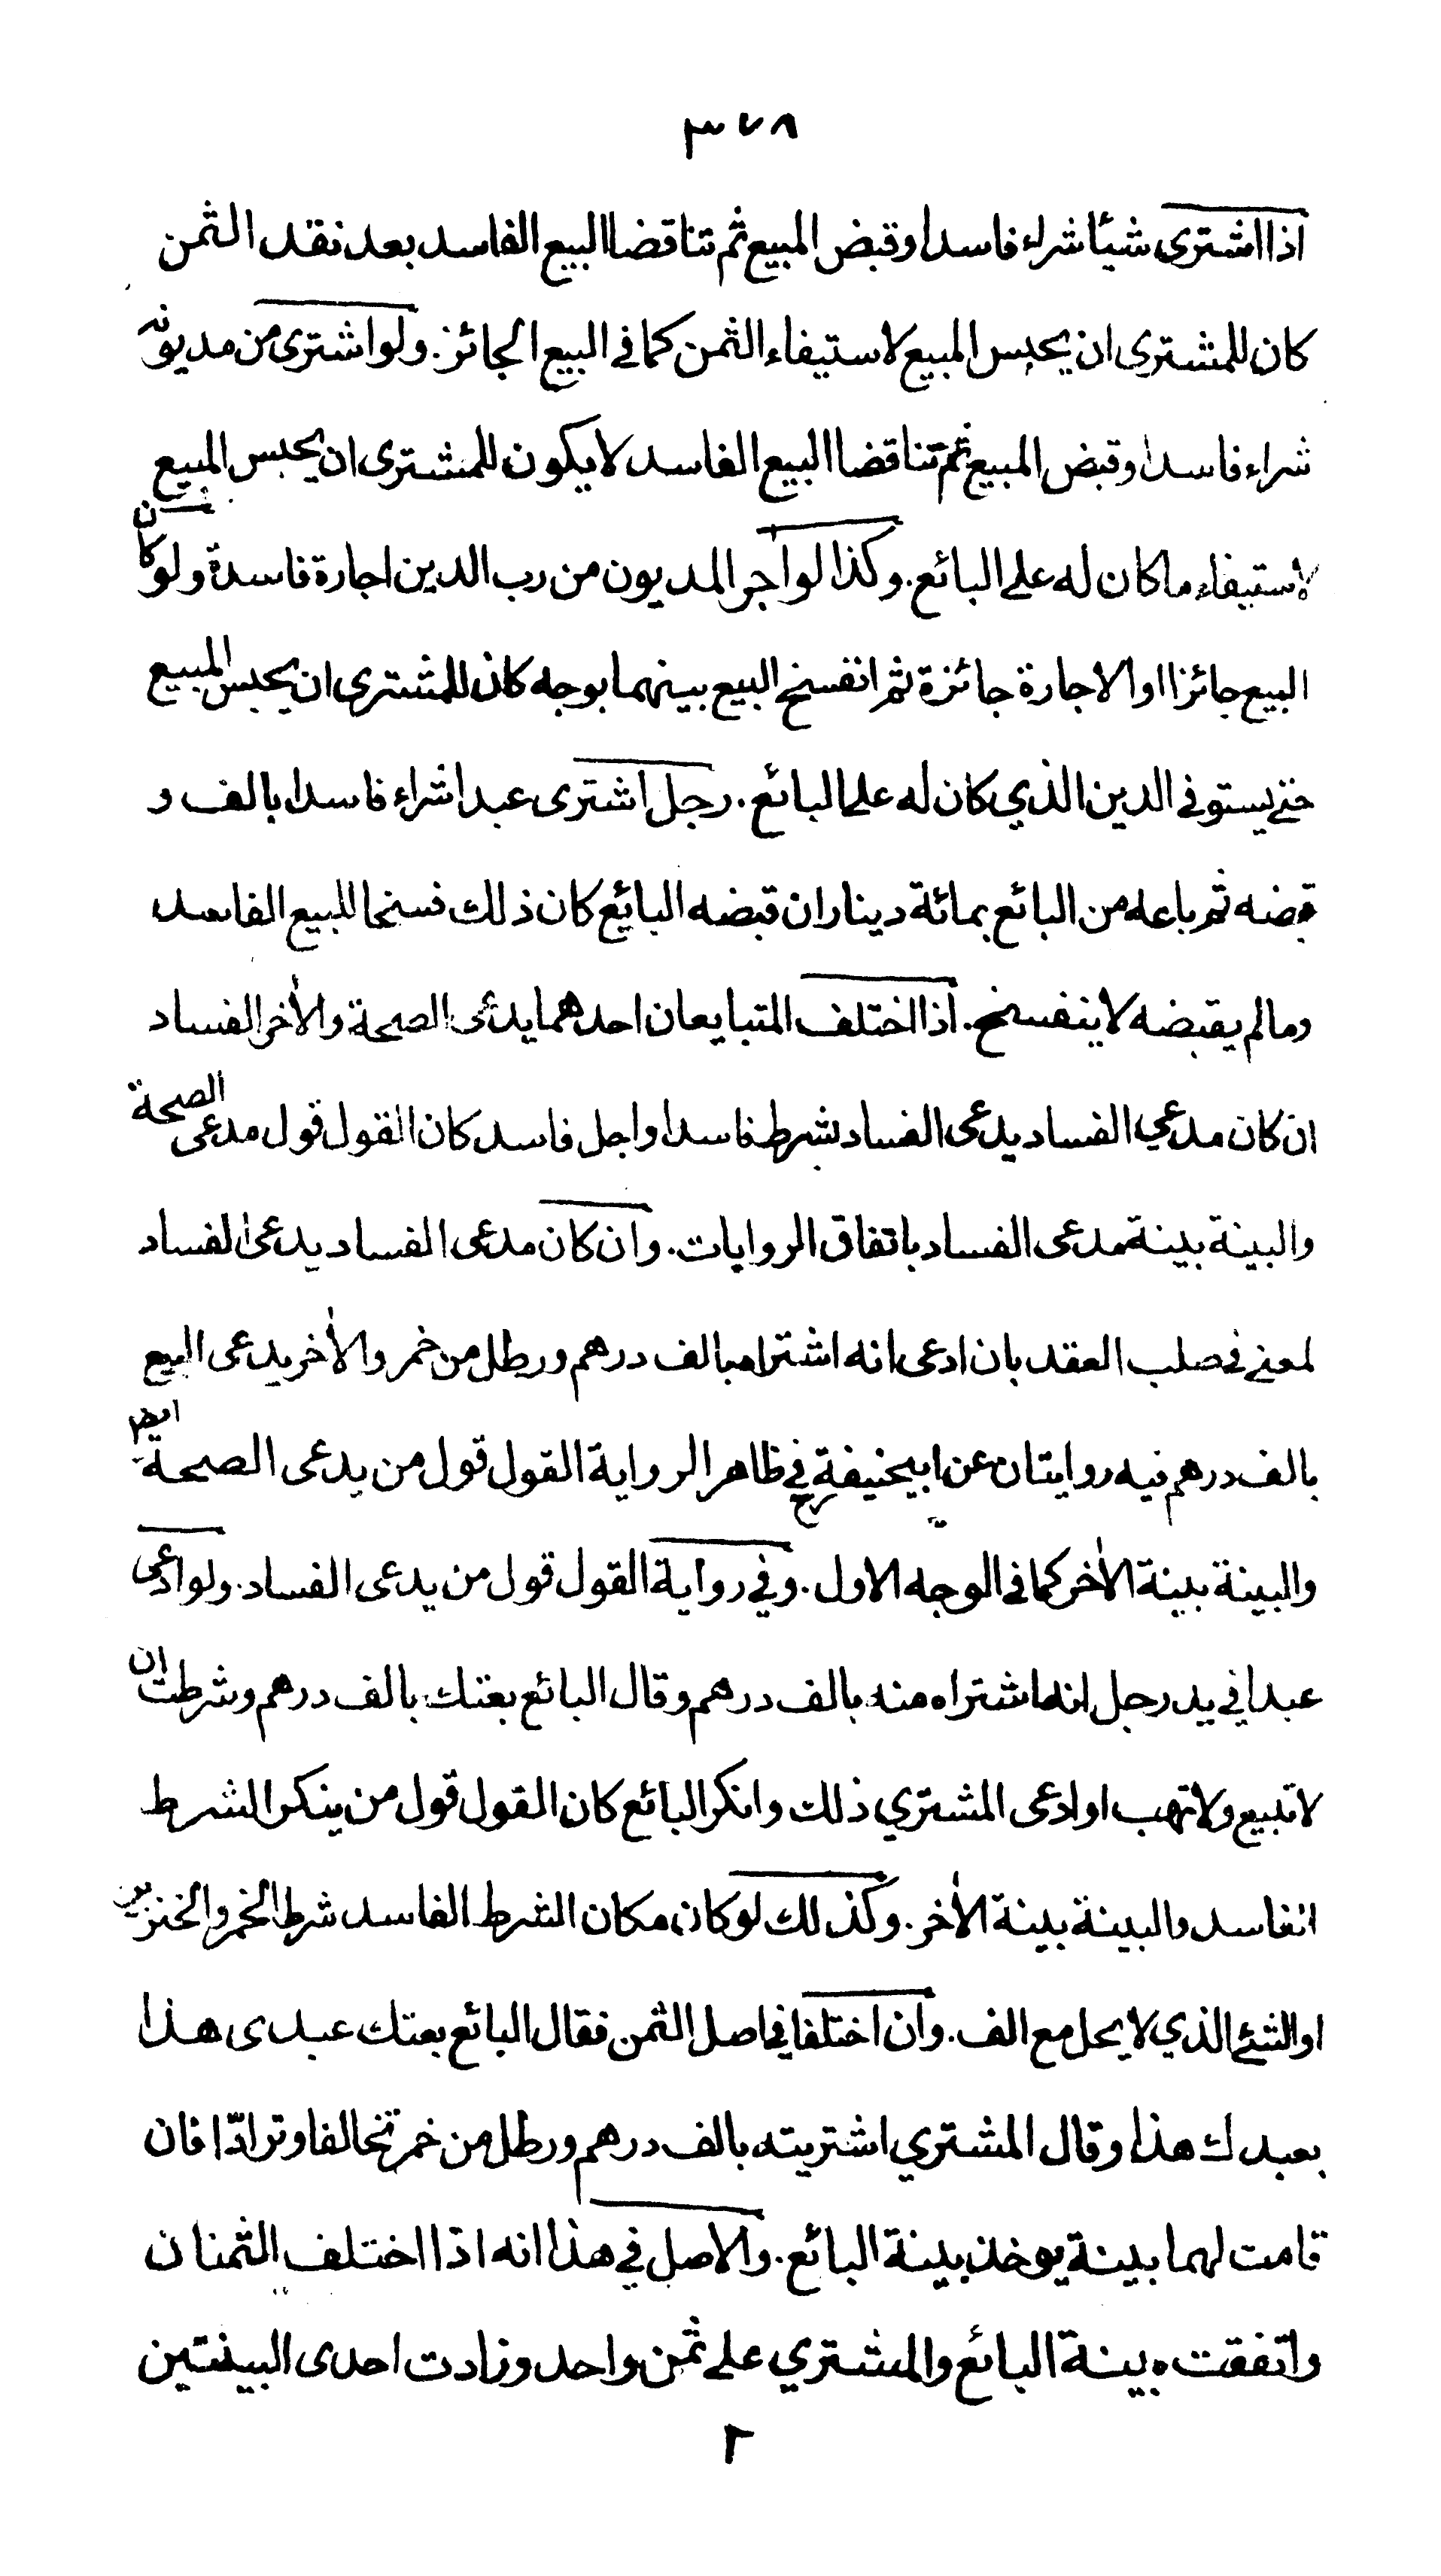 ٣٧٨
اذا اشترى شيئا شراء فاسدا وقبض المبيع ثم تناقضا البيع الفاسد بعد نقد الثمن
كان للمشترى ان يحبس المبيع لاستيفاء الثمن كما فى البيع الجائز. ولو اشترى من مديونه
شراء فاسدا وقبض المبيع ثم تناقضا البيع الفاسد لا يكون للمشترى ان يحبس المبيع
لاستيفاء ما كان له على البائع. وكذا لو آجر المديون من رب الدين اجارة فاسدة ولو كان
البيع جائزا او الاجارة جائزة ثم انفسخ البيع بينهما بوجه كان للمشترى ان يحبس المبيع
حتى يستوفى الدين الذي كان له على البائع. رجل اشترى عبدا شراء فاسدا بالف و
قبضه ثم باعه من البائع بمائة دينار ان قبضه البايع كان ذلك فسخا للبيع الفاسد
وما لم يقبضه لا ينفسخ. اذا اختلف المتبايعان احدهما يدعى الصحة والأخر الفساد
ان كان مدعي الفساد يدعى الفساد بشرط فاسد او اجل فاسد كان القول قول مدعى الصحة
والبينة بينة مدعى الفساد باتفاق الروايات. وان كان مدعى الفساد يدعى الفساد
لمعنى فى صلب العقد بان ادعى انه اشتراه بالف درهم ورطل من خمر والأخر يدعى البيع
بالف درهم فيه روايتان عن ابيحنيفة رح في ظاهر الرواية القول قول من يدعى الصحة ايضا
والبينة بينة الأخر كما فى الوجه الاول. وفي رواية القول قول من يدعى الفساد. ولو ادعى
عبدا في يد رجل انه اشتراه منه بالف درهم وقال البائع بعتك بالف درهم وشرطت ان
لا تبيع ولا تهب او ادعى المشتري ذلك وانكر البائع كان القول قول من ينكر الشرط
الفاسد والبينة بينة الأخر. وكذلك لو كان مكان الشرط الفاسد شرط الخمر والخنزير
او الشئ الذي لا يحل مع الف. وان اختلفا في اصل الثمن فقال البائع بعتك عبدى هذا
بعبدك هذا وقال المشتري اشتريته بالف درهم ورطل من خمر تحالفا وترادّا فان
قامت لهما بينة يوخذ بينة البائع. والاصل في هذا انه اذا اختلف الثمنان
واتفقت بينة البائع والمشتري على ثمن واحد وزادت احدى البينتين
٢